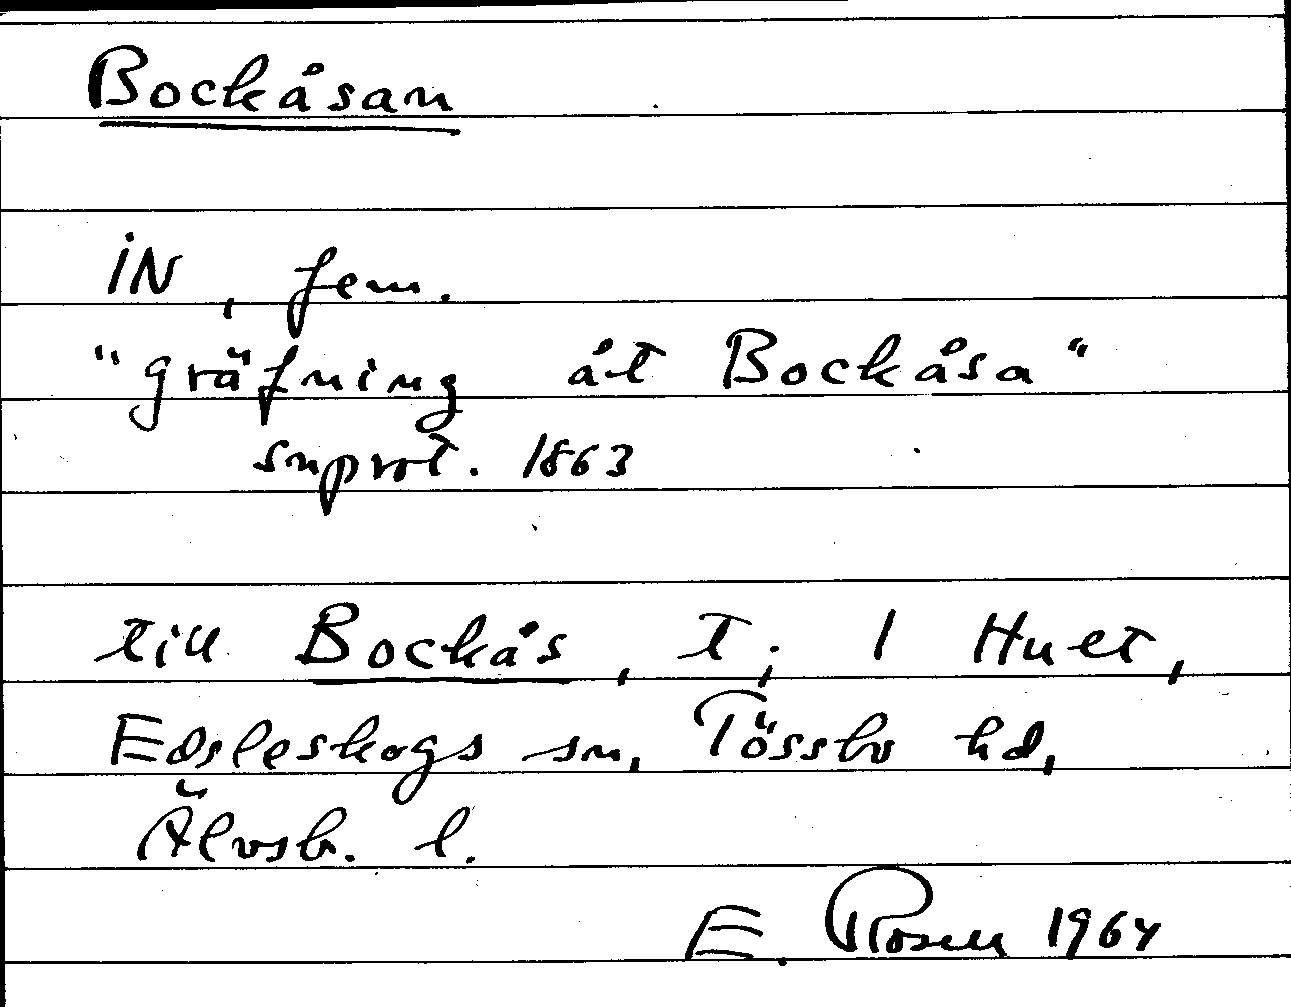 Bockåsan
iN, fem.
"gräfning åt Bockåsa"
snprot. 1863
till Bockås, t; 1 Huet,
Edsleskogs sn, Tössbo hd,
Älvsb. l.
E. Rosell 1964